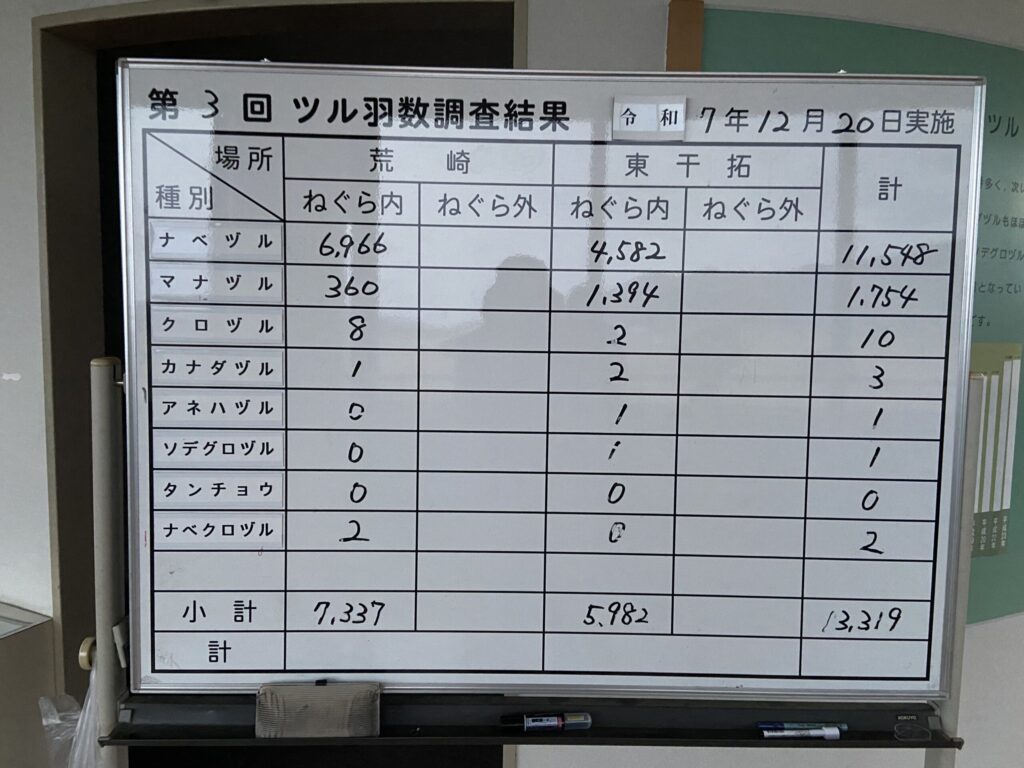 第 3 回 ツル羽数調査結果 令和 7年12月20日実施
場所 荒崎 東干拓 計
種別 ねぐら内 ねぐら外 ねぐら内 ねぐら外
ナベヅル 6,966 4,582 11,548
マナヅル 360 1,394 1,754
クロヅル 8 2 10
カナダヅル 1 2 3
アネハヅル 0 1 1
ソデグロヅル 0 1 1
タンチョウ 0 0 0
ナベクロヅル 2 0 2
小計 7,337 5,982 13,319
計
KOKUYO
ツル
多く、次い
ヅルもほぼ
ソデグロヅル
となってい
です。
平成20年
平成22年
平成23年